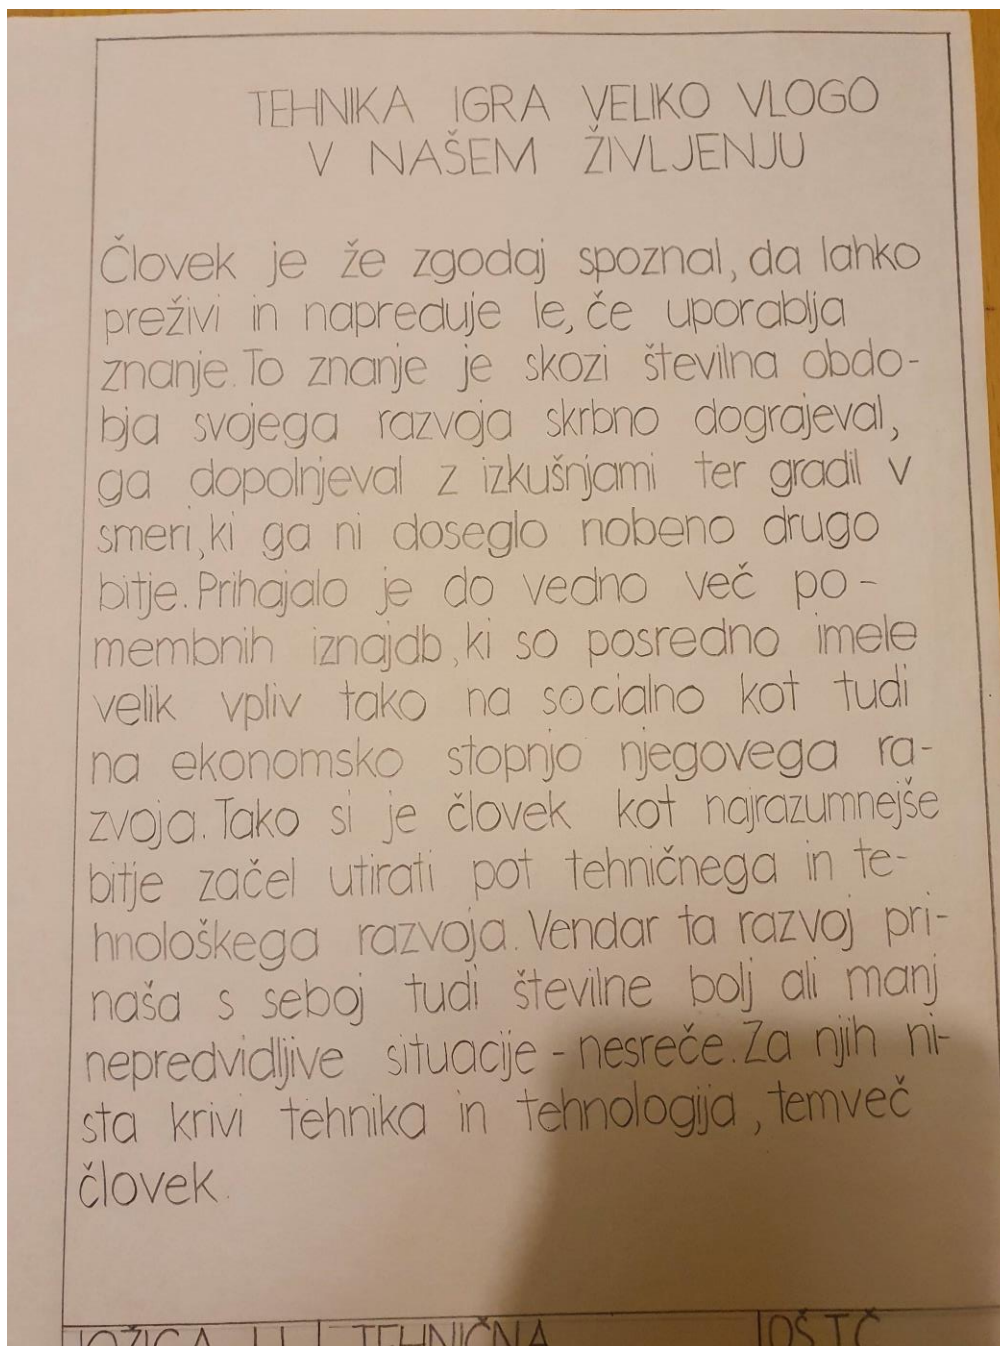 TEHNIKA IGRA VELIKO VLOGO
V NAŠEM ŽIVLJENJU
Človek je že zgodaj spoznal, da lahko
preživi in napreduje le, če uporablja
znanje. To znanje je skozi številna obdo-
bja svojega razvoja skrbno dograjeval,
ga dopolnjeval z izkušnjami ter gradil v
smeri, ki ga ni doseglo nobeno drugo
bitje. Prihajalo je do vedno več po-
membnih iznajdb, ki so posredno imele
velik vpliv tako na socialno kot tudi
na ekonomsko stopnjo njegovega ra-
zvoja. Tako si je človek kot najrazumnejše
bitje začel utirati pot tehničnega in te-
hnološkega razvoja. Vendar ta razvoj pri-
naša s seboj tudi številne bolj ali manj
nepredvidljive situacije - nesreče. Za njih ni-
sta krivi tehnika in tehnologija, temveč
človek.
TEHNIČNA